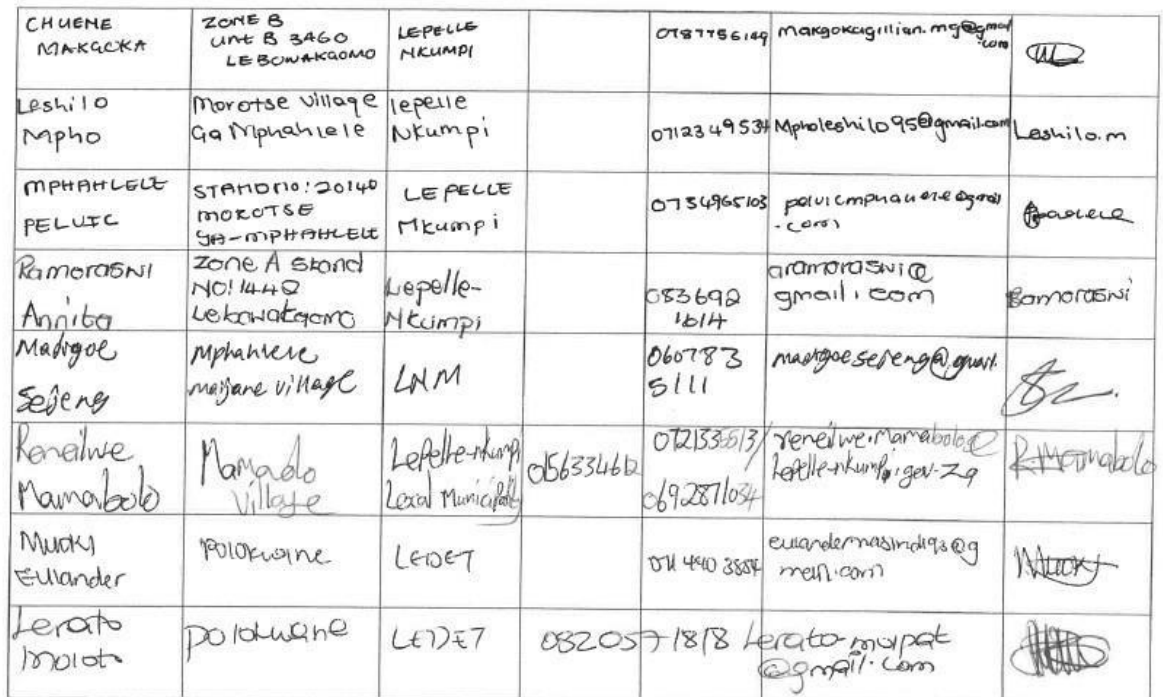 CHUENE MAKGOKA
ZONE B
UNIT B 3460
LEBOWAKGOMO
LEPELLE
NKUMPI
0787756149
makgokagillian.mg@gmail
.com
Leshilo
Mpho
Morotse village
Ga Mphahlele
lepelle
Nkumpi
0712349534
Mpholeshilo95@gmail.com
Leshilo.m
MPHAHLELE
PELVIC
STAND NO: 20140
MOROTSE
GA-MPHAHLELE
LEPELLE
Nkumpi
0734965103
pelvicmphahlele@gmail
.com
Ramoraswi
Annita
Zone A stand
NO! 1442
Lebowakgomo
Lepelle-
Nkumpi
083692
1614
aramoraswi@
gmail.com
Ramoraswi
Madigoe
Sejeng
Mphahlele
maijane village
LNM
060783
5111
madigoesejeng@gmail.
Reneilwe
Mamabolo
Village
Lepelle-nkumpi
Local Municipality
0156334612
0721335513/
0692871034
reneilwe.mamabolo@
lepelle-nkumpi.gov.za
R.Mamabolo
Eulander
Polokwane
LEDET
071 440 3884
gmail.com
Lerato
Moloto
polokwane
LEDET
0820571818
Lerato-morpat
@gmail.com